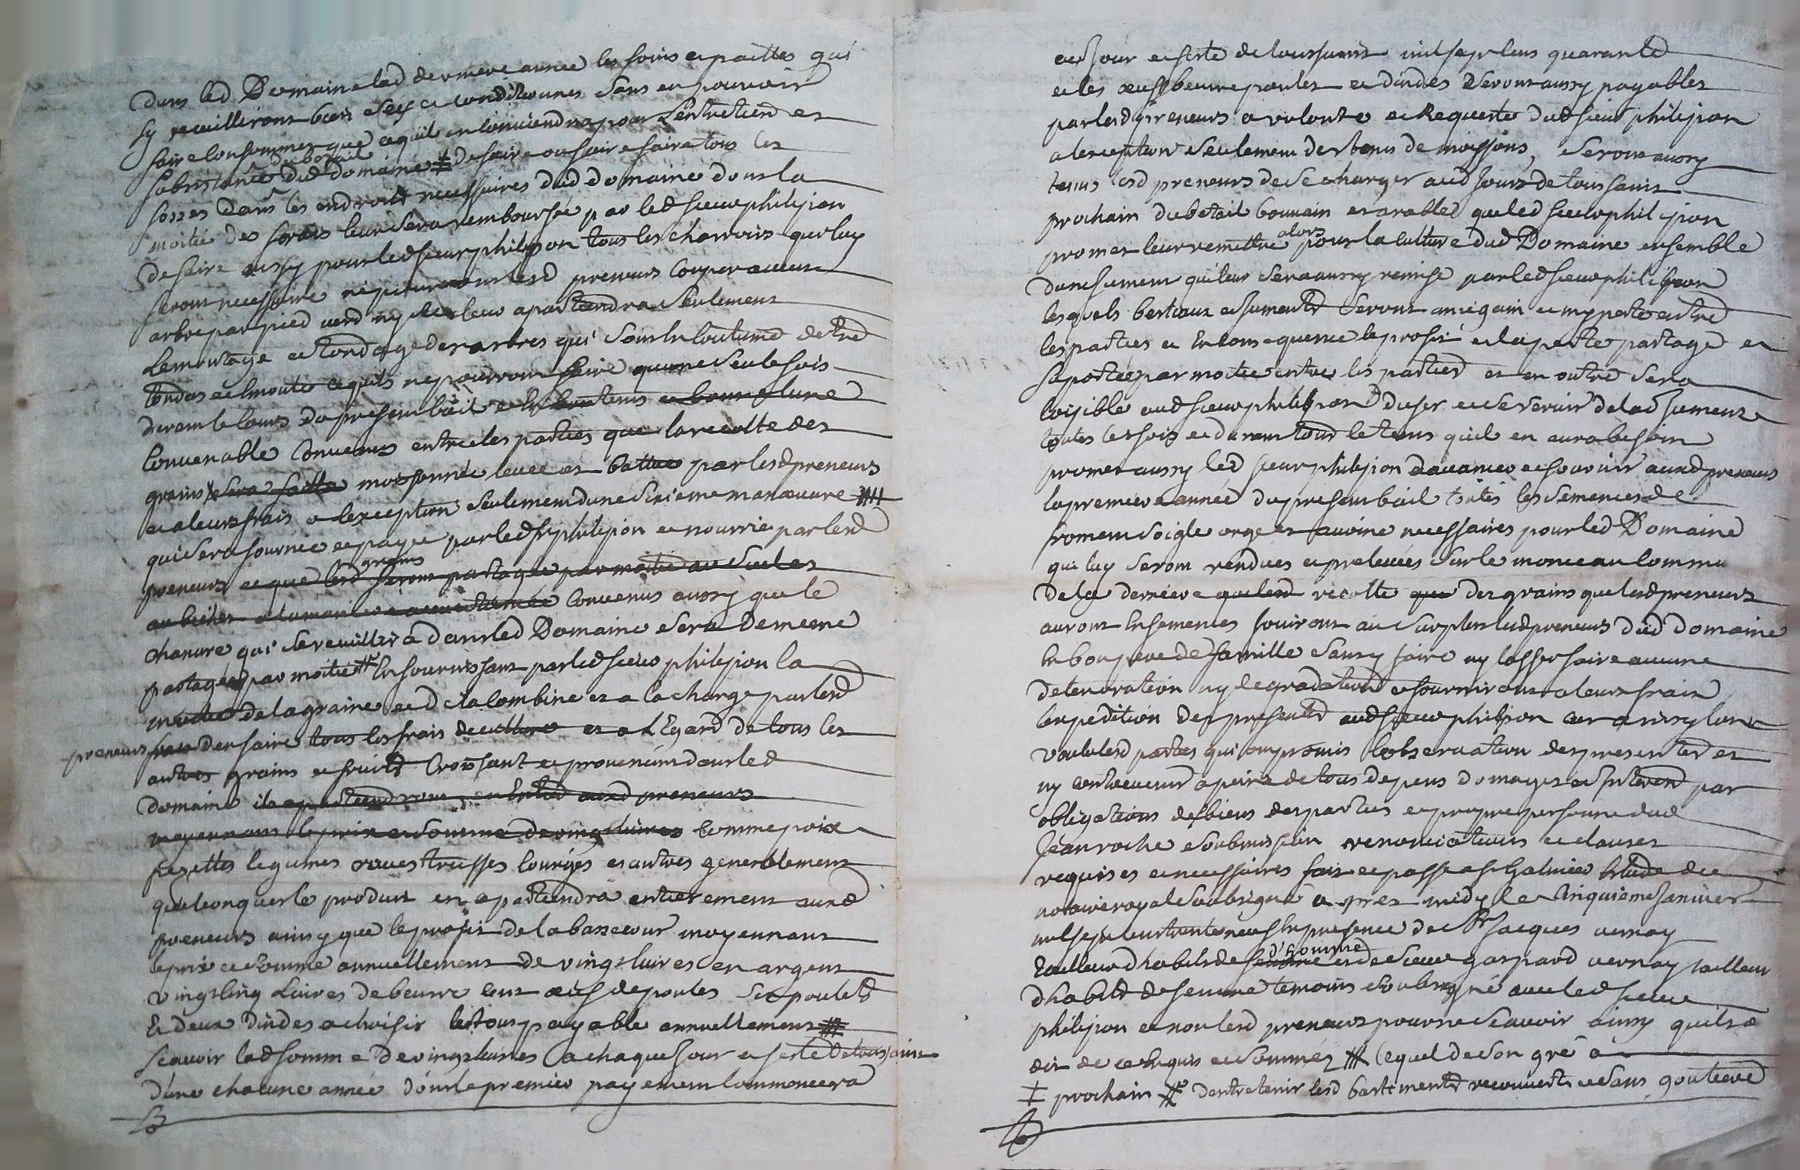 dans led Domaine lad derniere année les foins et pailles qui
sy recueilliront bien et conditionnés sans en pouvoir
faire consommer que ce quil en conviendra pour Lentretien et
subsistance du betail dud domaine # de faire ou faire faire tous les
fosses dans les endroits necessaires dud domaine dont la
moitié des frais leur sera remboursée par led sieur philipion
de faire aussy pour led sieur philipion tous les charrois que luy
seront necessaire ne pourront lesd preneurs couper aucun
arbre par pied verd ny sec leur apartiendra seulement
Lemontage et tondage des arbres qui sont en coutume detre
tondus et emontes ce quils ne pourront faire quune seule fois
durant le cours du present bail et en bon tems et bonne lune
convenable convenus entre les parties que la recolte des
grains sera faitte moissonnée levee et battue par lesd preneurs
et a leurs frais a lexception seulement dune sixieme manoeuvre ##
qui sera fournie et payee par led sr philipion et nourrie par lesd
preneurs et que lesd grains seront partagés par moitié au seul et
au bichet a la maniere accoutumée convenus aussy que le
chanvre qui se reuillira dans led Domaine sera de meme
partagé par moitié # En fournissant par led sieur philipion la
moitié de la graine et de la colombine et a la charge par lesd
preneurs den faire tous les frais de culture et a l'Egard de tous les
autres grains et fruits croissant et provenant dans led
domaine ils apartiendront en Entier auxd preneurs
moyennant le prix et somme de vingt livres comme poix
fezettes legumes raves truffes courges et autres generalement
quelconques le produit en apartiendra entierement auxd
preneurs ainsy que le profit de la bassecour moyennant
le prix et somme annuellement de vingt livres en argent
vingt cinq Livres de beurre cent oeufs de poules six poulets
Et deux dindes a choisir le tout payable annuellement #
Scavoir lad somme de vingt livres a chaque jour et feste de toussaint
d'une chacune année dont le premier payement commencera
aud jour et feste de toussaint mil sept cens quarante
et les oeufs beurre poulets et dindes seront aussy payables
par lesd preneurs a volonté et Requeste dud sieur philipion
a lexception seulement des tems de moissons, seront aussy
tenus lesd preneurs de se charger aud jour de toussaint
prochain du betail bouvain et arable que led sieur philipion
promet leur remettre alors pour la culture dud Domaine ensemble
dune jument qui leur sera aussy remise par led sieur philipion
lesquels bestiaux et jument seront a migain et my perte entre
les parties et En consequence le profit et la perte partagé et
suportée par moitié entre les parties et en outre sera
loisible aud sieur philipion D'user et se servir de lad jument
toutes les fois et durant tout le tems quil en aura besoin
promet aussy led sieur philipion davancer et fournir auxd preneurs
la premiere année du present bail toutes les semences de
froment soigle orge et avoine necessaires pour led Domaine
qui luy seront rendues et prelevées sur le monceau commun
de la derniere recolte des grains que lesd preneurs
auront Ensemencés jouiront au surplus lesd preneurs dud domaine
En bon pere de famille sans y faire ny laisser faire aucune
deterioration ny degradation et fourniront a leurs frais
lexpedition des presentes aud sieur philipion car ainsy lont
voulu lesd parties qui ont promis lobservation des presentes et
ny contrevenir a peine de tous depens domages et interets par
obligations des biens des parties et propre personne dud
Jean roche et soubmission renonciations et clauses
requises et necessaires fait et passé a St Galmier Etude du
notaire royal soubsigné apres midy le cinquieme janvier
mil sept cens trente neuf En presence de Sr Jacques vernay
tailleur dhabits d'homme et de sieur gaspard vernay tailleur
dhabits de femme temoins soubsigné avec led sieur
philipion et non lesd preneurs pour ne scavoir ainsy quils ont
dit de ce Enquis et sommés ## lequel de son gré a
+ prochain # dentretenir lesd bastiments recouverts et sans goutiere